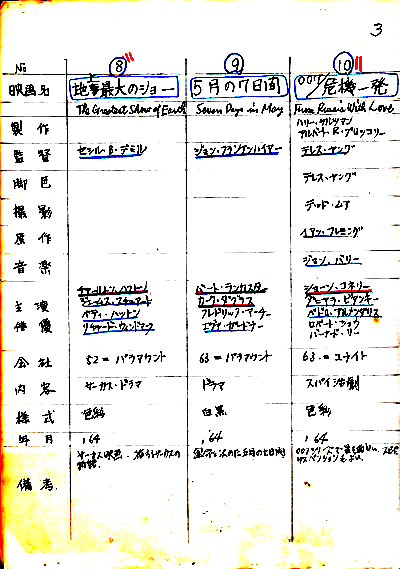 3
No ⑧ ⑨ ⑩
映画名 地上最大のショー 5月の7日間 007/危機一発
The Greatest Show of Earth Seven Days in May From Russia With Love
製作 ハリー・サルツマン
アルバート・R・ブロッコリー
監督 セシル・B・デミル ジョン・フランケンハイマー テレス・ヤング
脚色 テレス・ヤング
撮影 テッド・ムア
原作 イアン・フレミング
音楽 ジョン・バリー
主演俳優 チャールトン・ヘストン バート・ランカスター ショーン・コネリー
ジェームス・スチュアート カーク・ダグラス ダニエラ・ビアンキー
ベティ・ハットン フレドリック・マーチ ペドロ・アルメンダリス
リチャード・ウィドマーク エヴァ・ガードナー ロバート・ショウ
バーナード・リー
会社 52=パラマウント 63=パラマウント 63=ユナイト
内容 サーカス・ドラマ ドラマ スパイ活劇
様式 色彩 白黒 色彩
年月 ,64 ,64 ,64
備考 サーカス映画 サーカスの
物語 007シリーズ
サスペンションもよい